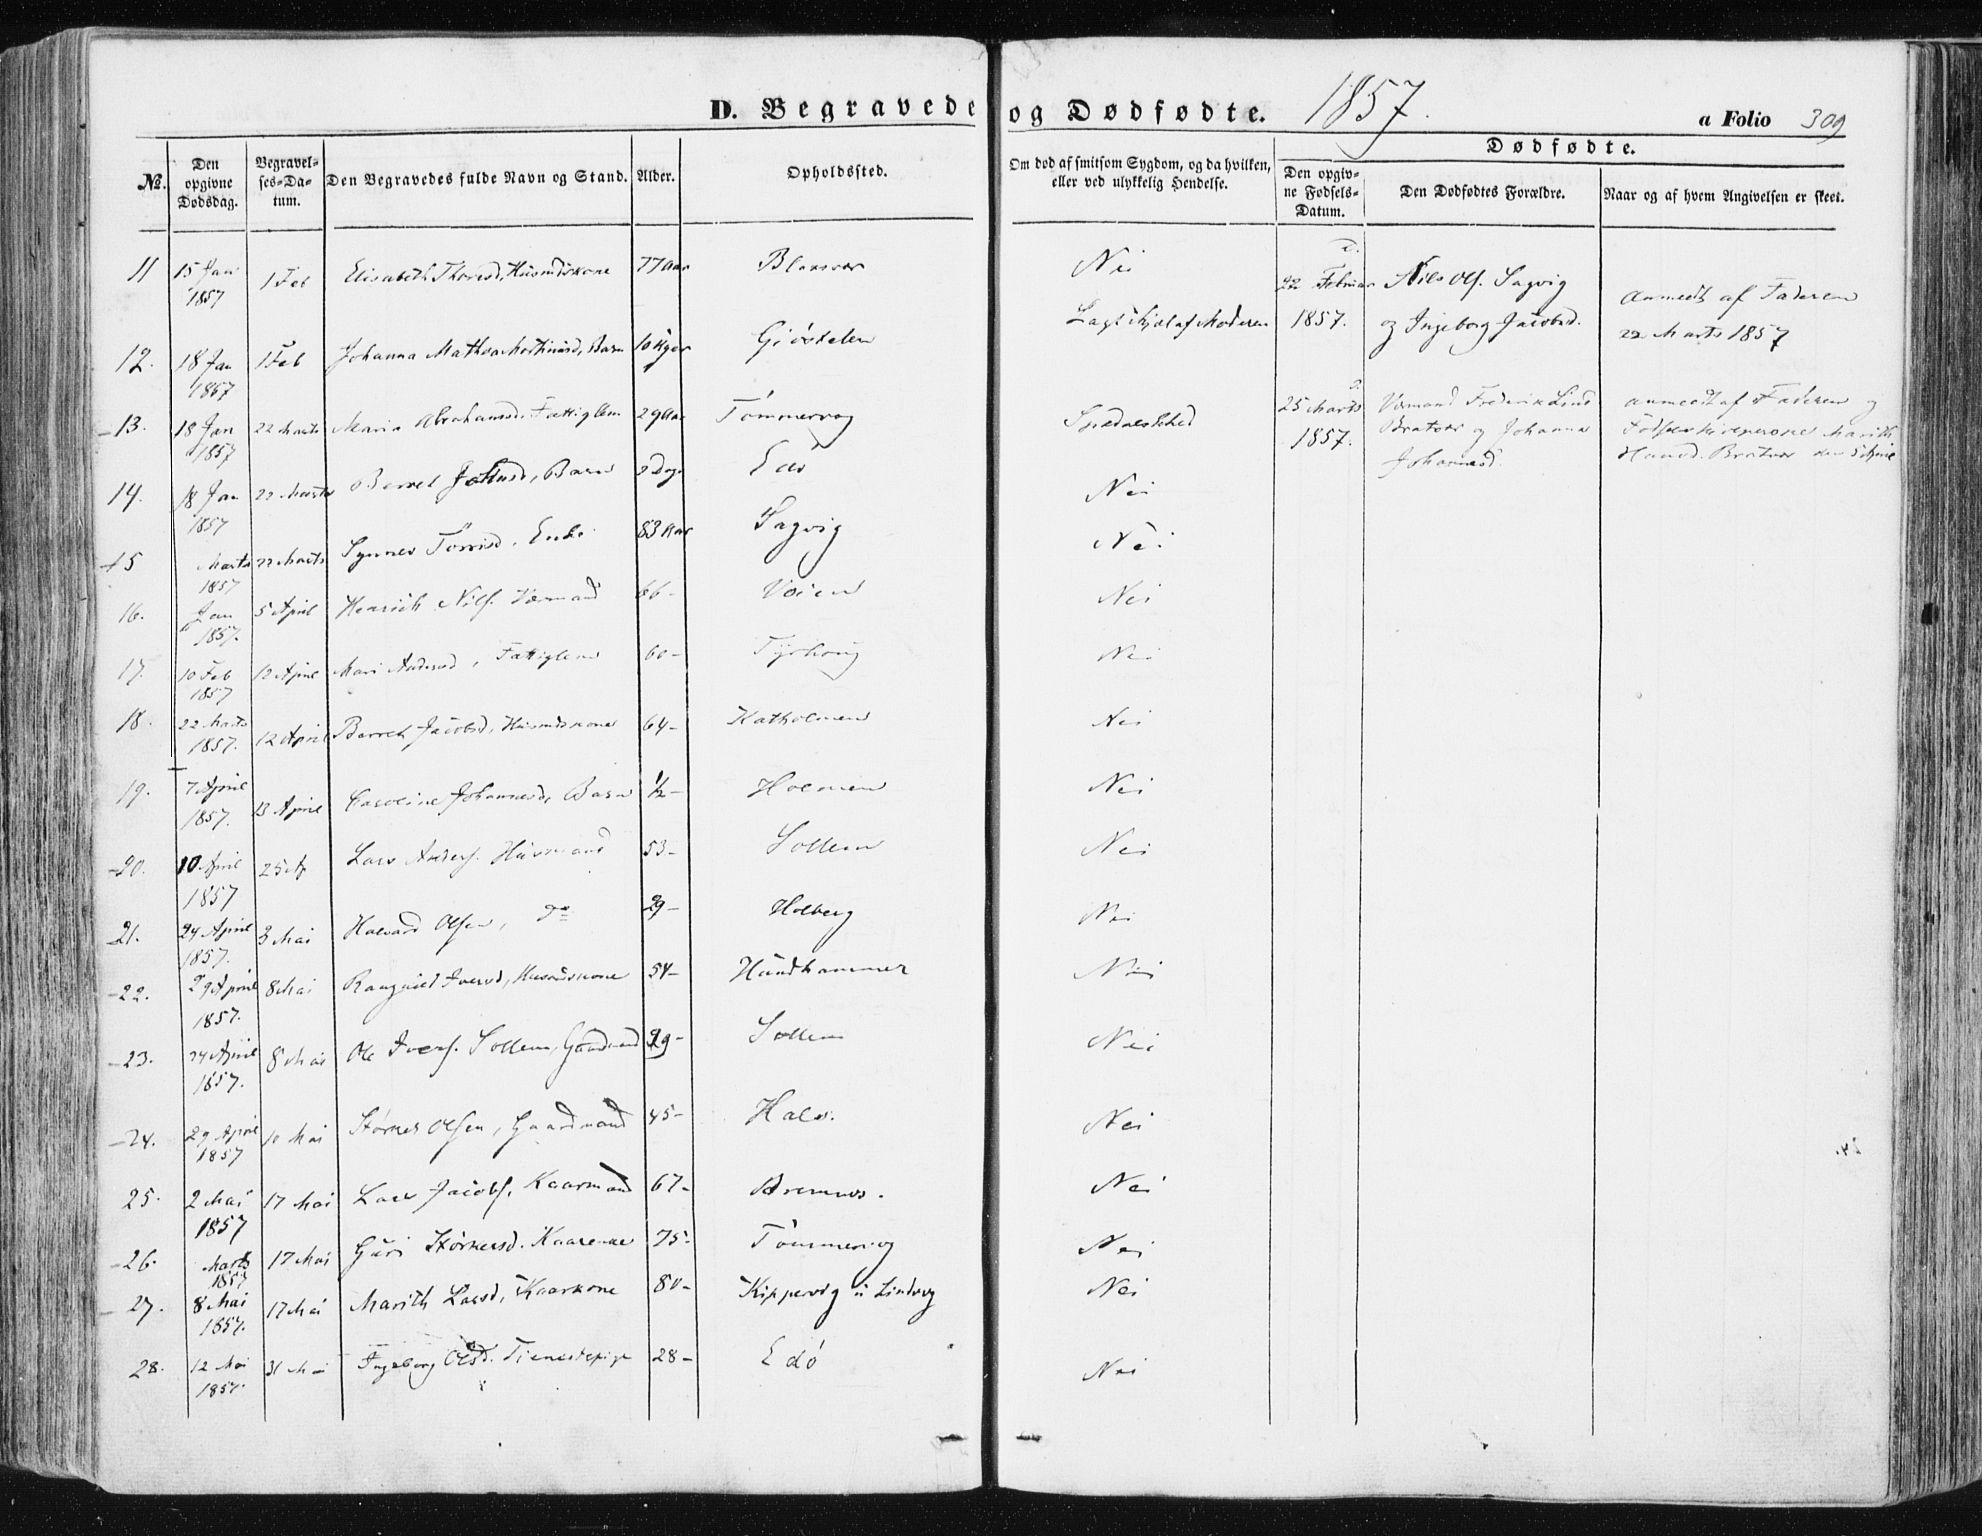 D. Begravede og Dødfødte. 1857.
a Folio 309
Dødfødte.
№. Den opgivne Dødsdag. Begravelses-Datum. Den Begravedes fulde Navn og Stand. Alder. Opholdssted. Om død af smitsom Sygdom, og da hvilken, eller ved ulykkelig Hendelse. Den opgivne Fødsels-Datum. Den Dødfødtes Forældre. Naar og af hvem Angivelsen er skeet.
11 15 Jan 1857 1 Feb Elisabeth Thoresd, Husmdskone 77 Aar Nei
12. 18 Jan 1857 1 Feb Johanna Mathea Barn 10 Uger Lagt ihjel af Moderen
13. 18 Jan 1857 22 Marts Maria Abrahamsd. Fattiglem 29 Aar Tømmervog Spedalskhed
14. 18 Jan 1857 22 Marts Berret Barn 2 Dage Edø Nei
15 Marts 1857 22 Marts Synnev Enke 83 Aar Sagvig Nei
16. Jan 1857. 5 April Henrich Nils. 66- Nei
17. 10 Feb 1857 12 April Mari Andersd, Fattiglem 60- Nei
18. 22 Marts 1857. 12 April Berret Jacobsd, Husmdskone 64- Katholmen Nei
19. 7 April 1857. 13 April Caroline Johannesd, Barn 1/2- Holmen Nei
20. 10 April 1857 25 A Lars Anders. Husmand 53- Sollem Nei
21. 24 April 1857. 3 Mai Halvard Olsen, do 29- Holberg Nei
22. 29 April 1857. 8 Mai Rangnild Iversd, Husmdskone 54- Hundhammer Nei
23. 24 April 1857. 8 Mai Ole Ivers. Sollem, Gaardmand 29- Sollem Nei
24. 29 April 1857 10 Mai Størker Olsen, Gaardmand 45- Hals. Nei
25. 2 Mai 1857 17 Mai Lars Jacobs, Kaarmand 67- Nei
26. Marts 1857 17 Mai Guri Størkersd. 75- Tømmervog Nei
27. 8 Mai 1857. 17 Mai Marith Larsd, Kaarkone 80- Kippervig u Lindvog Nei
28. 12 Mai 1857. 31 Mai Ingeborg Olsd. Tienestepige 28- Edø Nei
22 Februar 1857. Nils Ols. Sagvig og Ingeborg Jacobsd. anmeldt af Faderen 22 Marts 1857
25 Marts 1857. Frederik Lind Bratvær og Johanna Johannesd. anmeldt af Faderen og Marith Hansd. Bratvær den